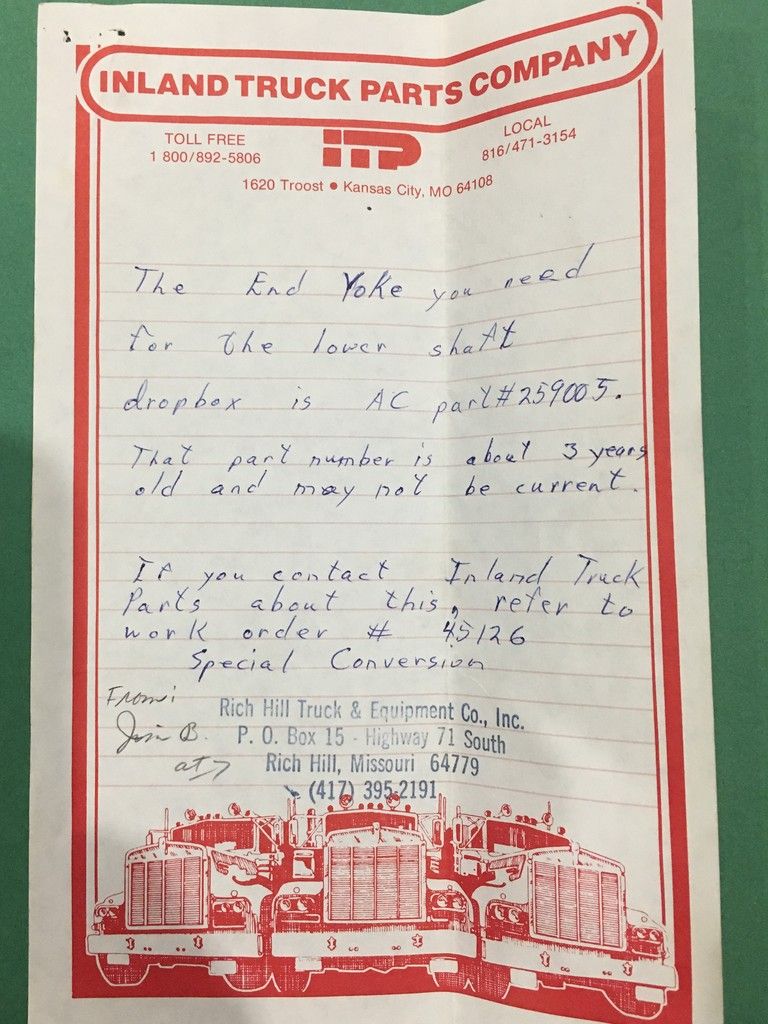 INLAND TRUCK PARTS COMPANY
TOLL FREE
1 800/892-5806
ITP
LOCAL
816/471-3154
1620 Troost • Kansas City, MO 64108
The End Yoke you need
for the lower shaft
dropbox is AC part#259005.
That part number is about 3 years
old and may not be current.
If you contact Inland Truck
Parts about this, refer to
work order # 45126
Special Conversion
From:
Jim B.
at
Rich Hill Truck & Equipment Co., Inc.
P. O. Box 15 - Highway 71 South
Rich Hill, Missouri 64779
(417) 395-2191